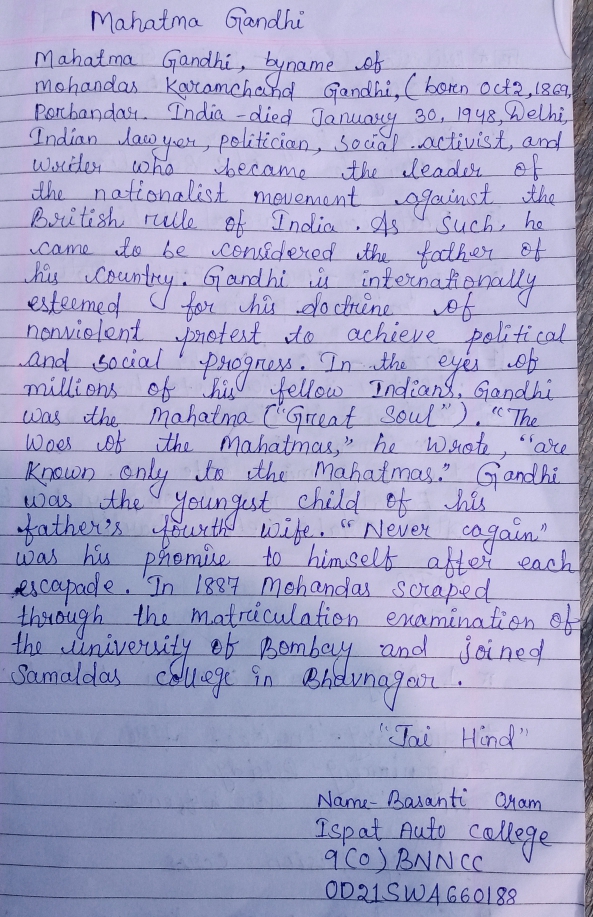 Mahatma Gandhi
Mahatma Gandhi, byname of
Mohandas Karamchand Gandhi, (born Oct 2, 1869,
Porbandar. India - died January 30, 1948, Delhi,
Indian lawyer, politician, social activist, and
writer who became the leader of
the nationalist movement against the
British rule of India. As such, he
came to be considered the father of
his country. Gandhi is internationally
esteemed for his doctrine of
nonviolent protest to achieve political
and social progress. In the eyes of
millions of his fellow Indians, Gandhi
was the Mahatma ("Great Soul"). "The
Woes of the Mahatmas," he wrote, "are
known only to the Mahatmas." Gandhi
was the youngest child of his
father's fourth wife. "Never again"
was his promise to himself after each
escapade. In 1887 Mohandas scraped
through the matriculation examination of
the university of Bombay and joined
Samaldas college in Bhavnagar.
"Jai Hind"
Name- Basanti Oram
Ispat Auto College
9(O) BNNCC
OD21SWA660188